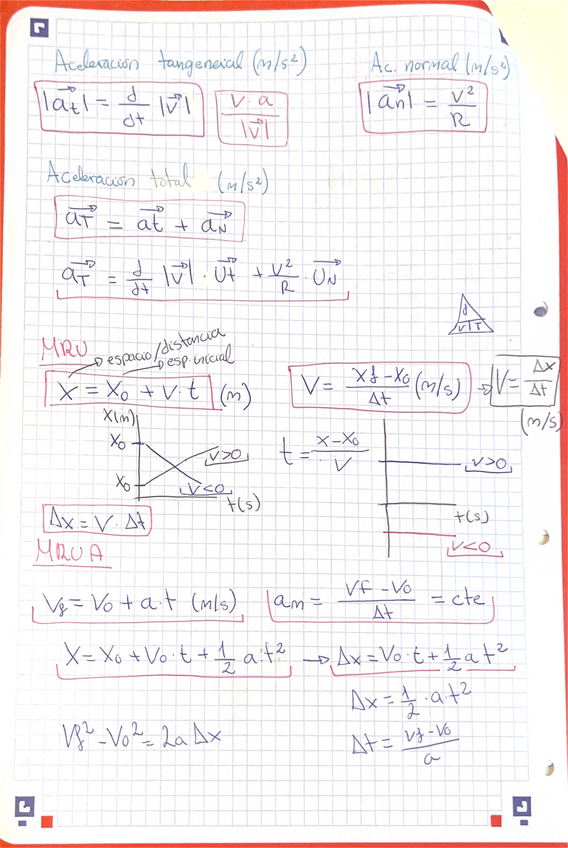 Aceleración tangencial (m/s²)   Ac. normal (m/s²)
|a⃗t| = d/dt |v⃗|   v · a / |v⃗|   |a⃗n| = v²/R
Aceleración total (m/s²)
a⃗T = a⃗t + a⃗N
a⃗T = d/dt |v⃗| · U⃗t + v²/R · U⃗N
d
V | T
MRU
→ espacio/distancia
→ esp. inicial
X = X₀ + V · t (m)   V = Xf - X₀ / Δt (m/s) → V = Δx / Δt
(m/s)
X(m)
X₀   V>0   t = X - X₀ / V   V>0
X₀   V<0   t(s)   t(s)
Δx = V · Δt   V<0
MRUA
Vf = V₀ + a · t (m/s)   am = Vf - V₀ / Δt = cte
X = X₀ + V₀ · t + 1/2 a · t² → Δx = V₀ · t + 1/2 a t²
Δx = 1/2 · a · t²
Vf² - V₀² = 2a Δx   Δt = Vf - V₀ / a